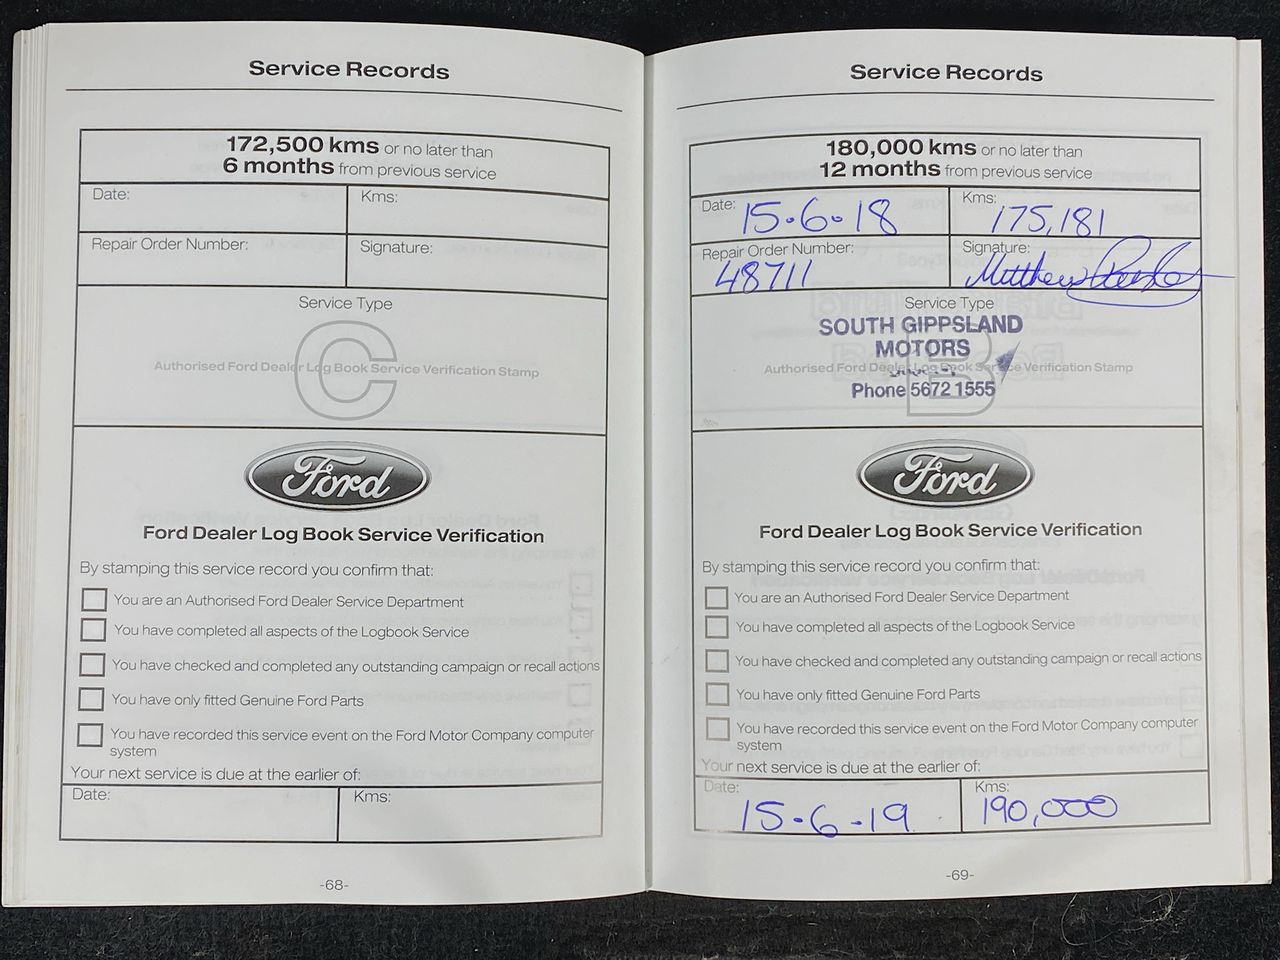 Service Records
172,500 kms or no later than
6 months from previous service
Date:
Kms:
Repair Order Number:
Signature:
Service Type
C
Authorised Ford Dealer Log Book Service Verification Stamp
Ford
Ford Dealer Log Book Service Verification
By stamping this service record you confirm that:
You are an Authorised Ford Dealer Service Department
You have completed all aspects of the Logbook Service
You have checked and completed any outstanding campaign or recall actions
You have only fitted Genuine Ford Parts
You have recorded this service event on the Ford Motor Company computer
system
Your next service is due at the earlier of:
Date:
Kms:
-68-
Service Records
180,000 kms or no later than
12 months from previous service
Date: 15.6.18
Kms: 175,181
Repair Order Number:
48711
Signature:
Matthew
Service Type
SOUTH GIPPSLAND
MOTORS
B
Authorised Ford Dealer Log Book Service Verification Stamp
Phone 5672 1555
Ford
Ford Dealer Log Book Service Verification
By stamping this service record you confirm that:
You are an Authorised Ford Dealer Service Department
You have completed all aspects of the Logbook Service
You have checked and completed any outstanding campaign or recall actions
You have only fitted Genuine Ford Parts
You have recorded this service event on the Ford Motor Company computer
system
Your next service is due at the earlier of:
Date: 15.6.19
Kms: 190,000
-69-